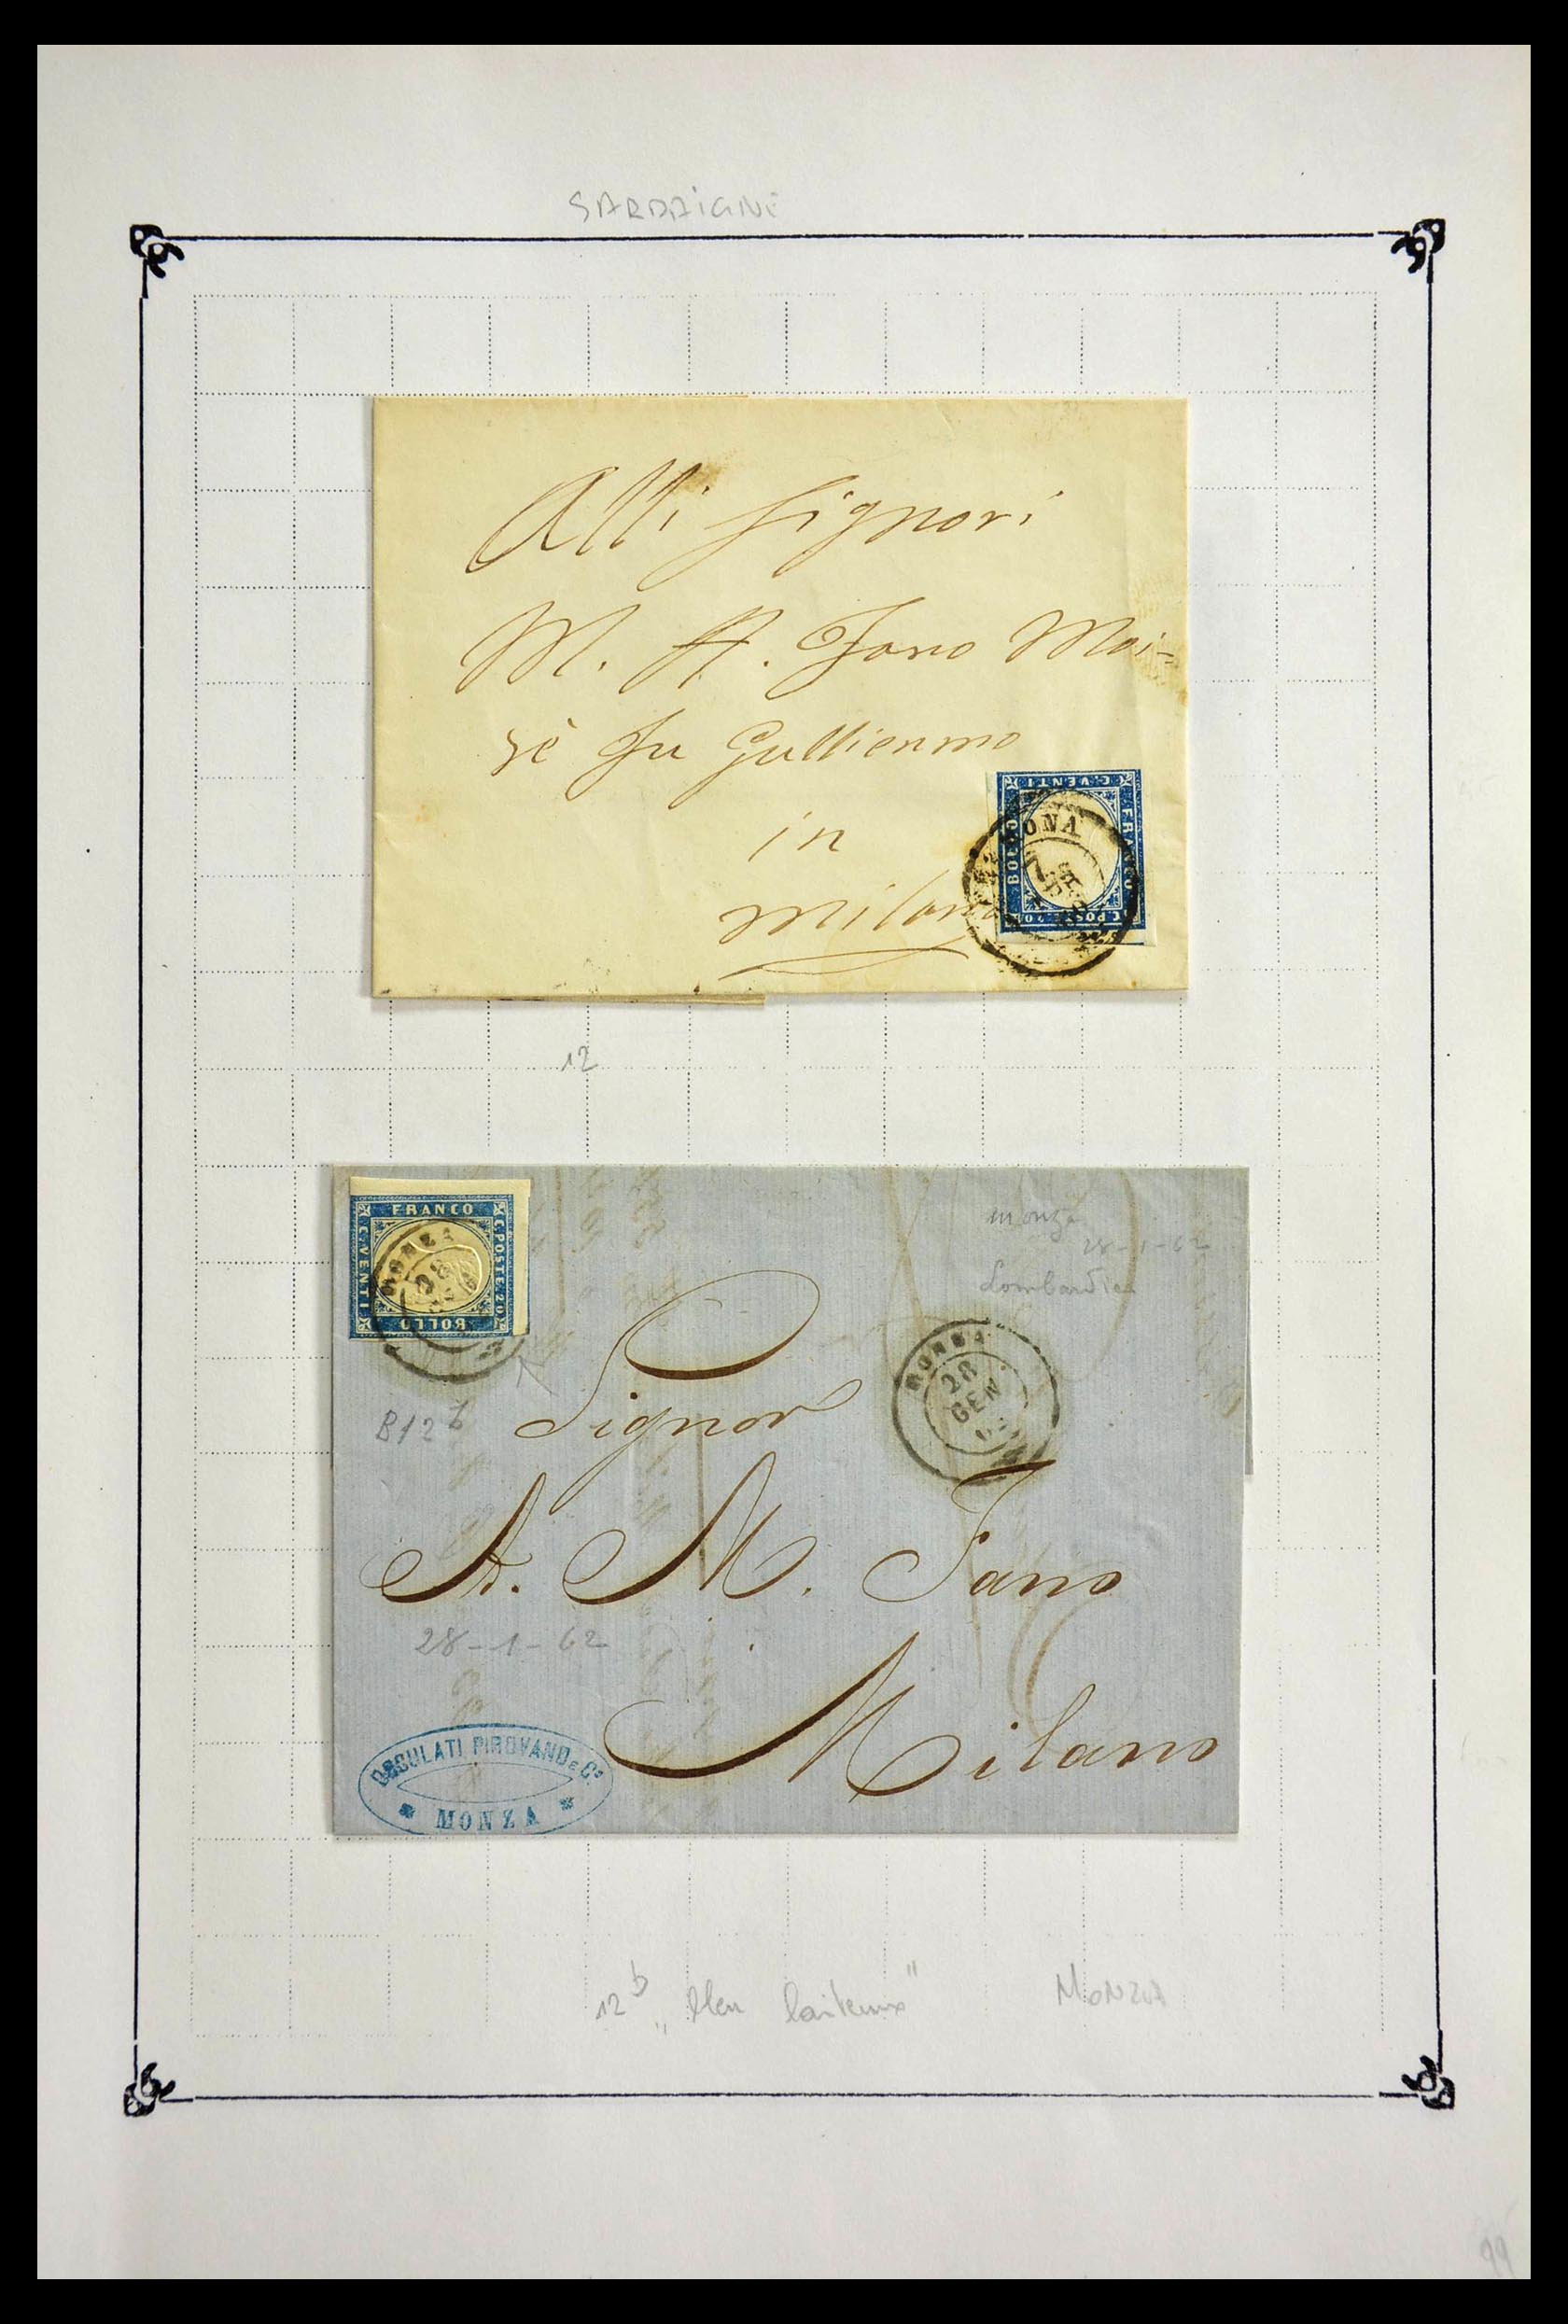 SARDAIGNE
Alli Signori
M. A. Fano Moi-
sè fu Gullienmo
in
Milano
C. VENTI
FRANCO
C. POSTE 20
BOLLO
ONA
12
FRANCO
C. POSTE 20
BOLLO
C. VENTI
MONZA
28
monza
28-1-62
Lombardia
MONZA
28
GEN
B12b
Signor
A. M. Fano
28-1-62
Milano
OSCULATI PIROVANO e Co.
MONZA
12b "bleu laiteux"
MONZA
99